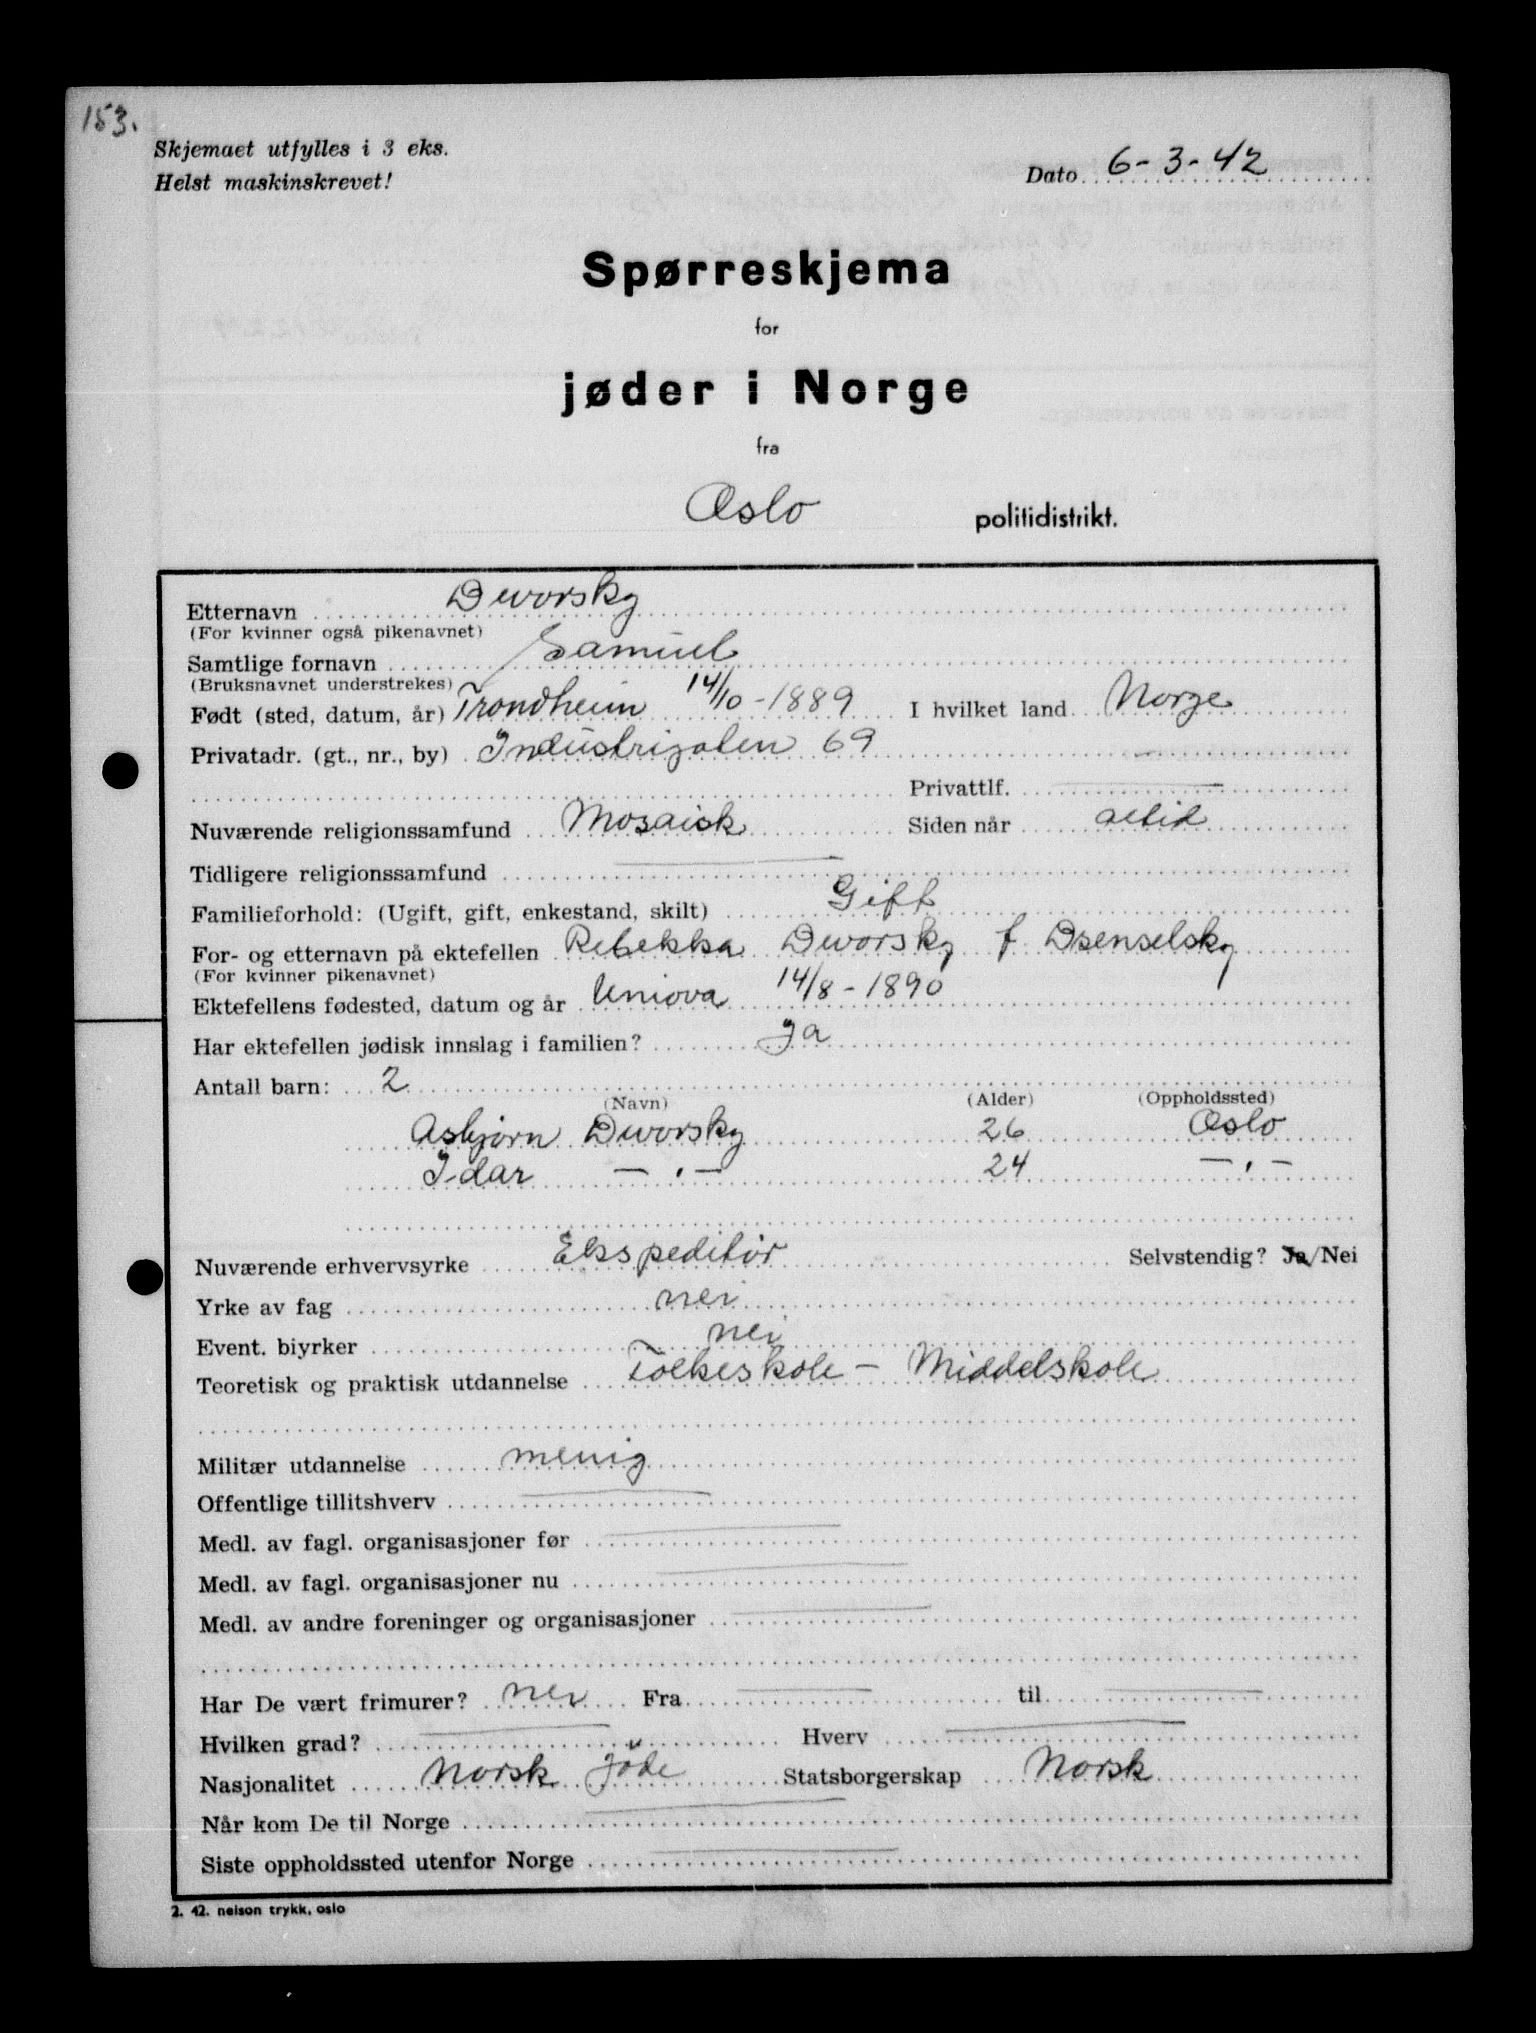 153.
Skjemaet utfylles i 3 eks.
Helst maskinskrevet!
Dato 6-3-42
Spørreskjema
for
jøder i Norge
fra
Oslo politidistrikt.
Etternavn Dworsky
(For kvinner også pikenavnet)
Samtlige fornavn Samuel
(Bruksnavnet understrekes)
Født (sted, datum, år) Trondheim 14/10-1889 I hvilket land Norge
Privatadr. (gt., nr., by) Industrigaten 69
Privattlf.
Nuværende religionssamfund Mosaisk Siden når altid
Tidligere religionssamfund
Familieforhold: (Ugift, gift, enkestand, skilt) Gift
For- og etternavn på ektefellen Rebekka Dworsky f Dsenselsky
(For kvinner pikenavnet)
Ektefellens fødested, datum og år Uniova 14/8-1890
Har ektefellen jødisk innslag i familien? Ja
Antall barn: 2
(Navn) (Alder) (Oppholdssted)
Asbjørn Dworsky 26 Oslo
Idar —.— 24 —.—
Nuværende erhvervsyrke Ekspeditør Selvstendig? Ja/Nei
Yrke av fag nei
Event. biyrker nei
Teoretisk og praktisk utdannelse Folkeskole - Middelskole
Militær utdannelse menig
Offentlige tillitshverv
Medl. av fagl. organisasjoner før
Medl. av fagl. organisasjoner nu
Medl. av andre foreninger og organisasjoner
Har De vært frimurer? nei Fra til
Hvilken grad? Hverv
Nasjonalitet Norsk Jøde Statsborgerskap Norsk
Når kom De til Norge
Siste oppholdssted utenfor Norge
2. 42. nelson trykk, oslo